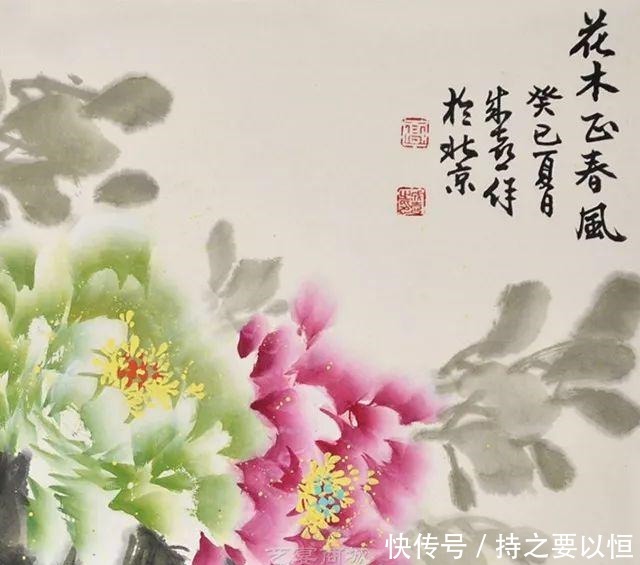 花木正春風
癸巳夏日
成喜作
於北京
快传号 / 持之要以恒